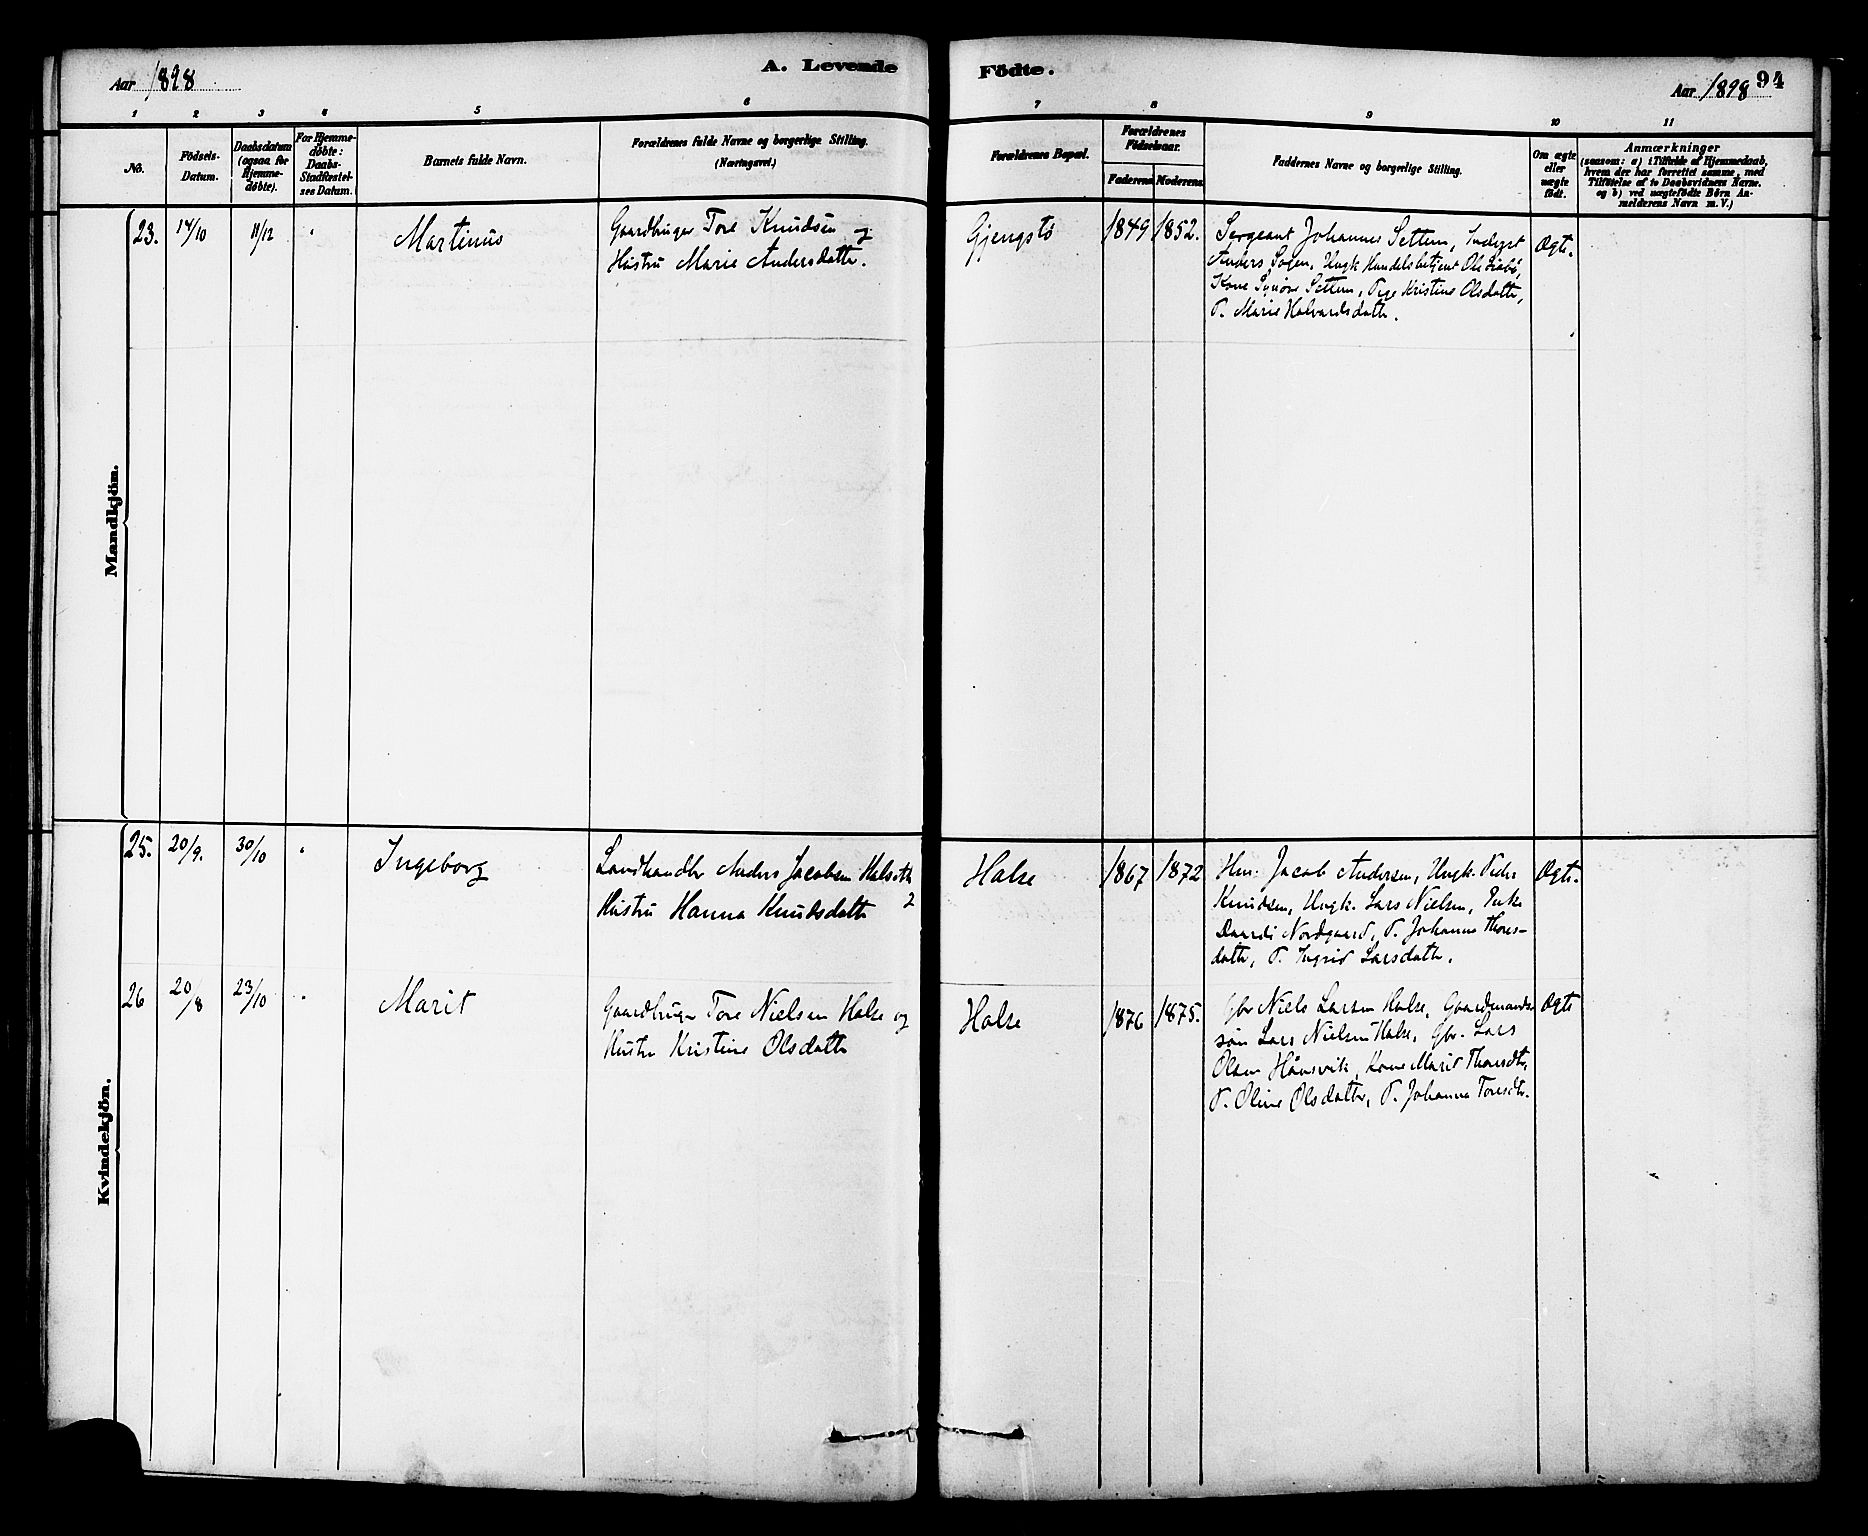 Aar 1898
A. Levende
Födte.
Aar 1898
94
1 2 3 4 5 6 7 8 9 10 11
No.
Födsels-
Datum.
Daabsdatum
(ogsaa for
Hjemme-
døbte).
For Hjemme-
døbte:
Daabs-
Stadfæstel-
ses Datum.
Barnets fulde Navn.
Forældrenes fulde Navne og borgerlige Stilling.
(Næringsvei.)
Forældrenes Bopæl.
Forældrenes
Födselsaar.
Faderens Moderens
Faddernes Navne og borgerlige Stilling.
Om ægte
eller
uægte
födt.
Anmærkninger
(saasom: a) i Tilfælde af Hjemmedaab,
hvem der har forrettet samme, med
Tilföielse af to Daabsvidners Navne.
og b) ved uægtefödte Börn An-
melderens Navn m. V.)
Mandkjön.
23. 14/10 11/12 " Martinus
Gaardbruger Tore Knudsen og
Hustru Marie Andersdatter.
Gjengstö 1849 1852.
Sergeant Johannes Settem, Inderst
Anders Sogen, Ungk Handelsbetjent Ole
Kone Synöve Settem, Pige Kristine Olsdatter,
P. Marie Halvardsdatter.
Ægte.
Kvindekjön.
25. 20/9. 30/10 " Ingeborg
Landhandler Anders Jacobsen Halse og
Hustru Hanna Knudsdatter
Halse 1867 1872
Jacob Andersen, Ungk. Peder
Knudsen, Ungk. Lars Nielsen, Enke
Nordgaard, P. Johanna Thores-
datter, P. Ingrid Larsdatter.
Ægte.
26 20/8 23/10 " Marit
Gaardbruger Tore Nielsen Halse og
Hustru Kristine Olsdatter
Halse 1876 1875.
Gbr Niels Larsen Halse, Gaardmands-
søn Lars Nielsen Halse, Gbr. Lars
Olsen Hånsvik, Kone Marit Thoresdtr,
P. Oline Olsdatter, P. Johanna Toresdtr.
Ægte